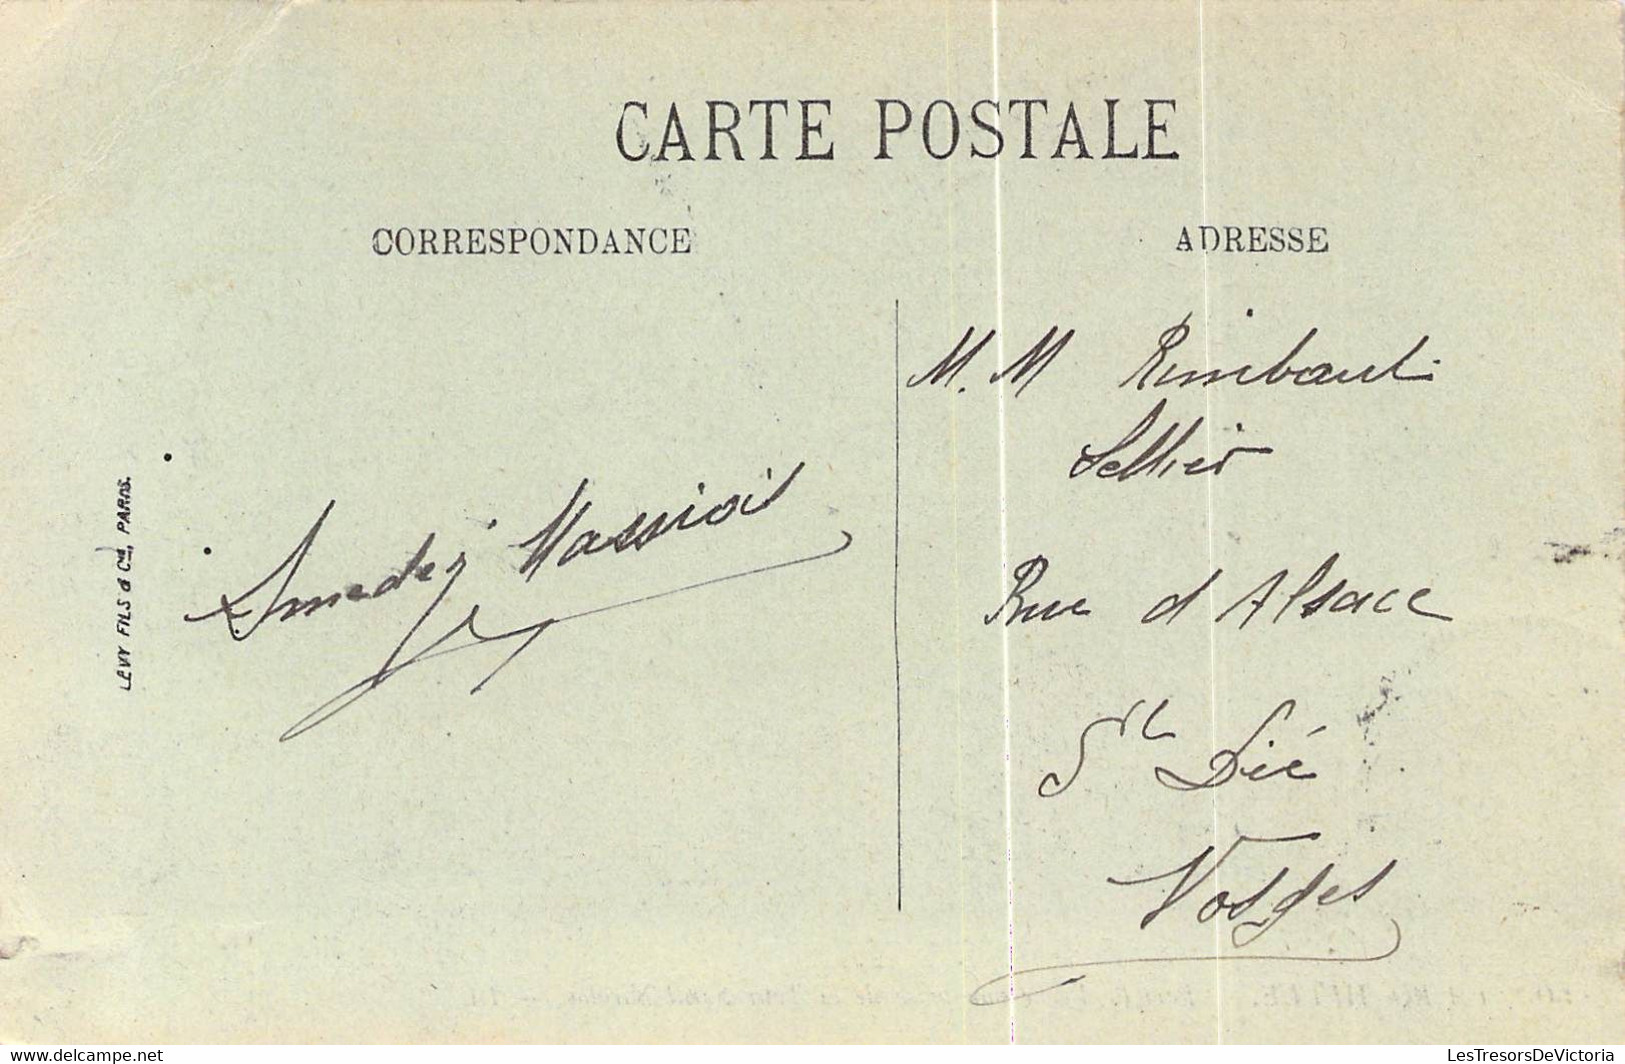 CARTE POSTALE
CORRESPONDANCE
ADRESSE
M. M Rimbault
Sellier
Rue d Alsace
St Dié
Vosges
Amedey
LEVY FILS & Cie, PARIS.
delcampe.net
LesTresorsDeVictoria